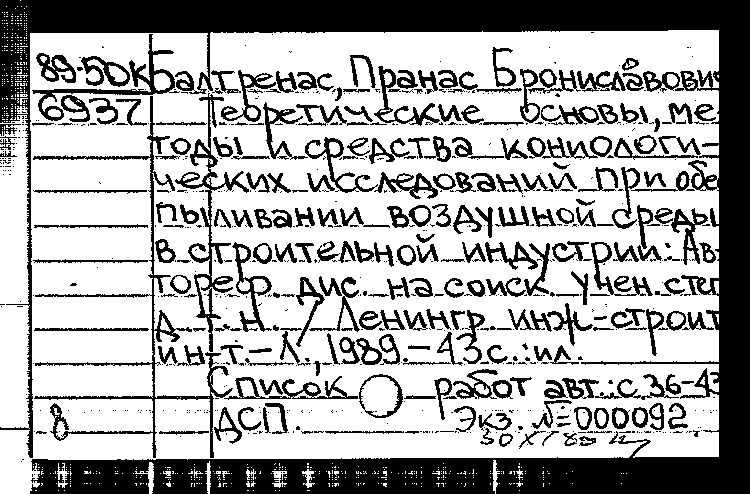 89-5DK Балтренас, Пранас Брониславович
6937 Теоретические основы, ме-
тоды и средства кониологи-
ческих исследований при обес
пыливании воздушной среды
в строительной индустрии: Ав-
тореф. дис. на соиск. учен. степ
д. т. н. / Ленингр. инж.-строит
ин-т. - Л., 1989. - 43 с.: ил.
Список работ авт.: с. 36-43
8 ДСП. Экз. №=000092